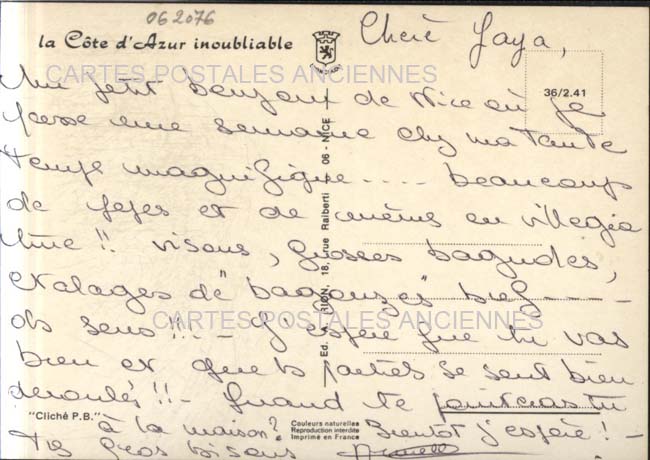 062076
la Côte d'Azur inoubliable
Cheré Yaya,
36/2.41
CARTES POSTALES ANCIENNES
Un petit bonjour de Nice où je
passe une semaine chez ma tante
temps magnifique .... beaucoup
de et de mémés en villégia
ture !! visons, grosses bagnoles,
étalages de "bagouzes" bref ----
obsens !!! - J'espère que tu vas
CARTES POSTALES ANCIENNES
bien et que ts parties se sont bien
déroulés !! - Quand te pointeras tu
"Cliché P.B."
à la maison? Bientôt j'espère! -
Très gros bisous
Ed. A. RION, 18, rue Raiberti - 06 - NICE
Couleurs naturelles
Reproduction interdite
Imprimé en France